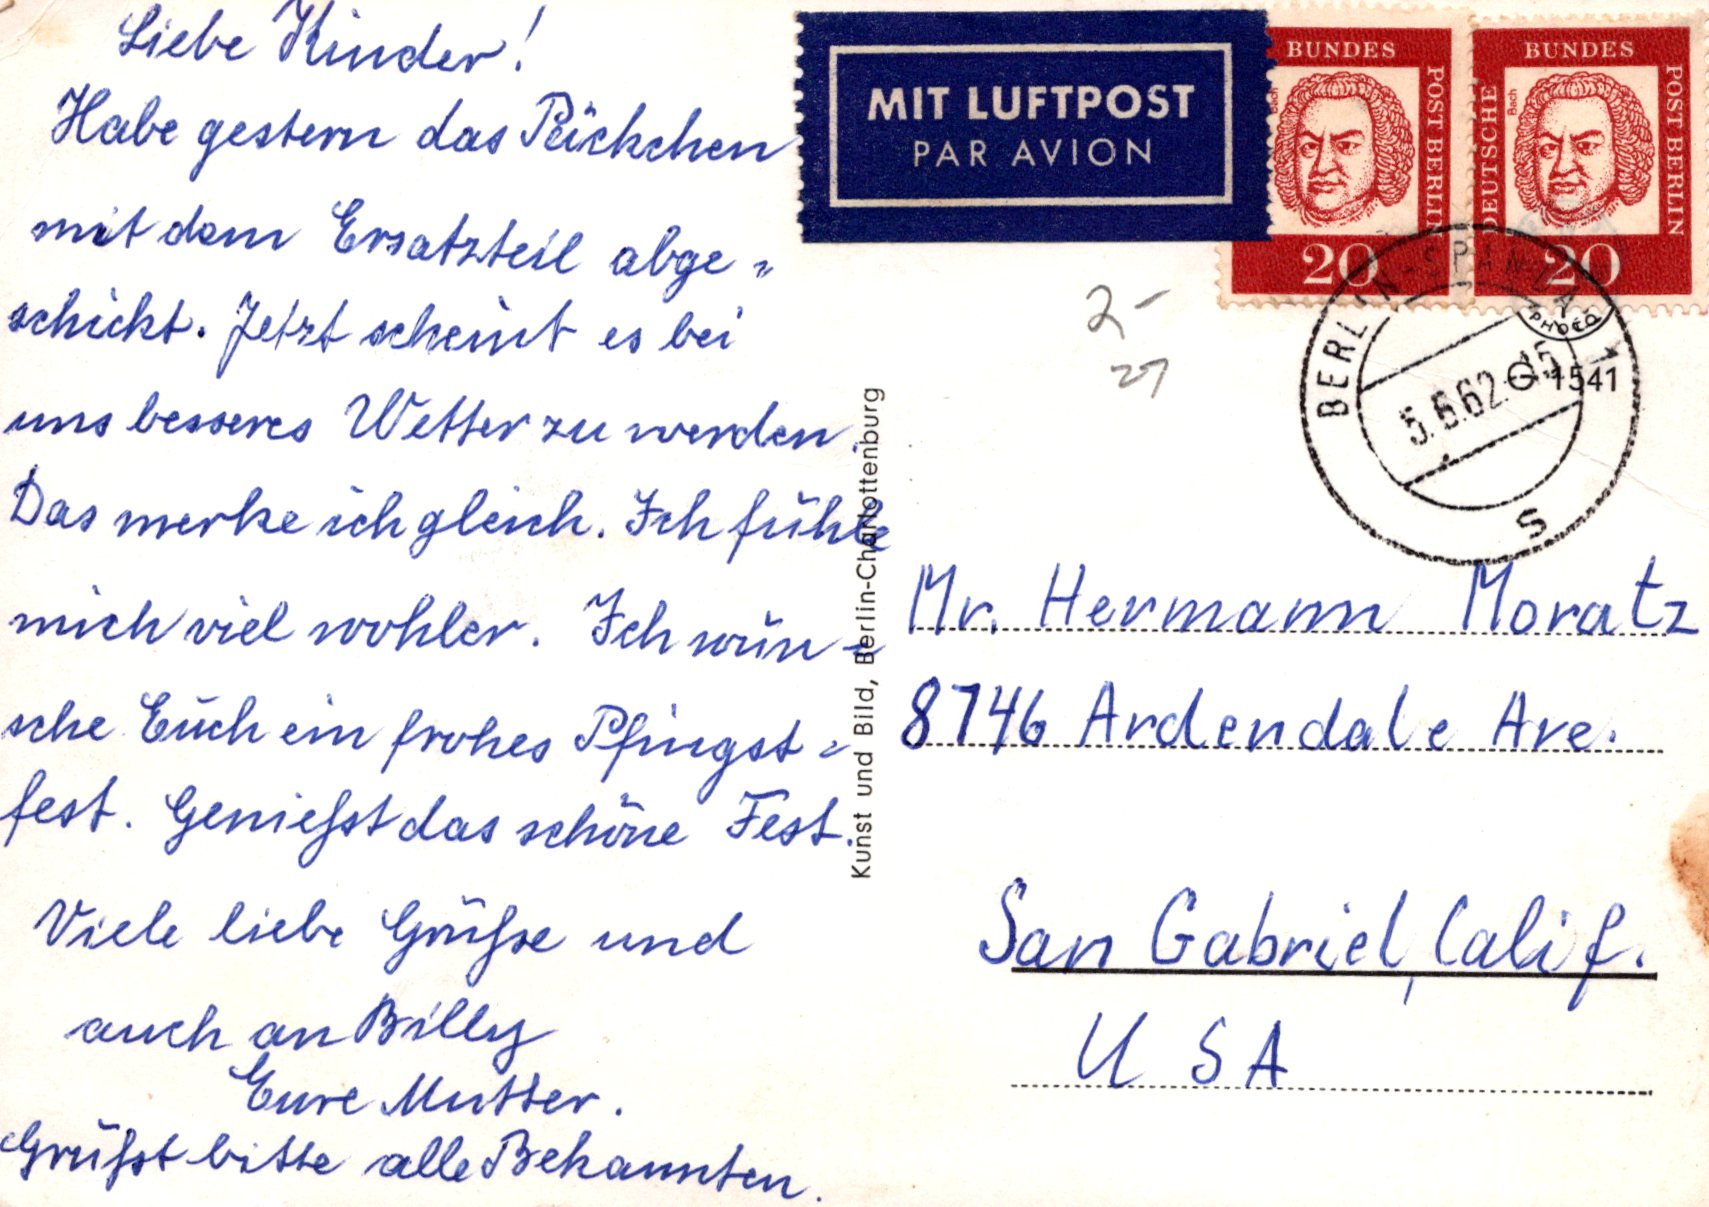 Liebe Kinder!
Habe gestern das Päckchen
mit dem Ersatzteil abge=
schickt. Jetzt scheint es bei
uns besseres Wetter zu werden.
Das merke ich gleich. Ich fühle
mich viel wohler. Ich wün=
sche Euch ein frohes Pfingst=
fest. Genießt das schöne Fest.
Viele liebe Grüße und
auch an Billy
Eure Mutter.
Grüßt bitte alle Bekannten.
Kunst und Bild, Berlin-Charlottenburg
MIT LUFTPOST
PAR AVION
BUNDES
POST BERLIN
20
DEUTSCHE
BUNDES
POST BERLIN
Bach
20
2,-
27
BERLIN-SPANDAU 1
5.6.62.-15
S
PHOCO
G 1541
Mr. Hermann Moratz
8746 Ardendale Ave.
San Gabriel, Calif.
USA